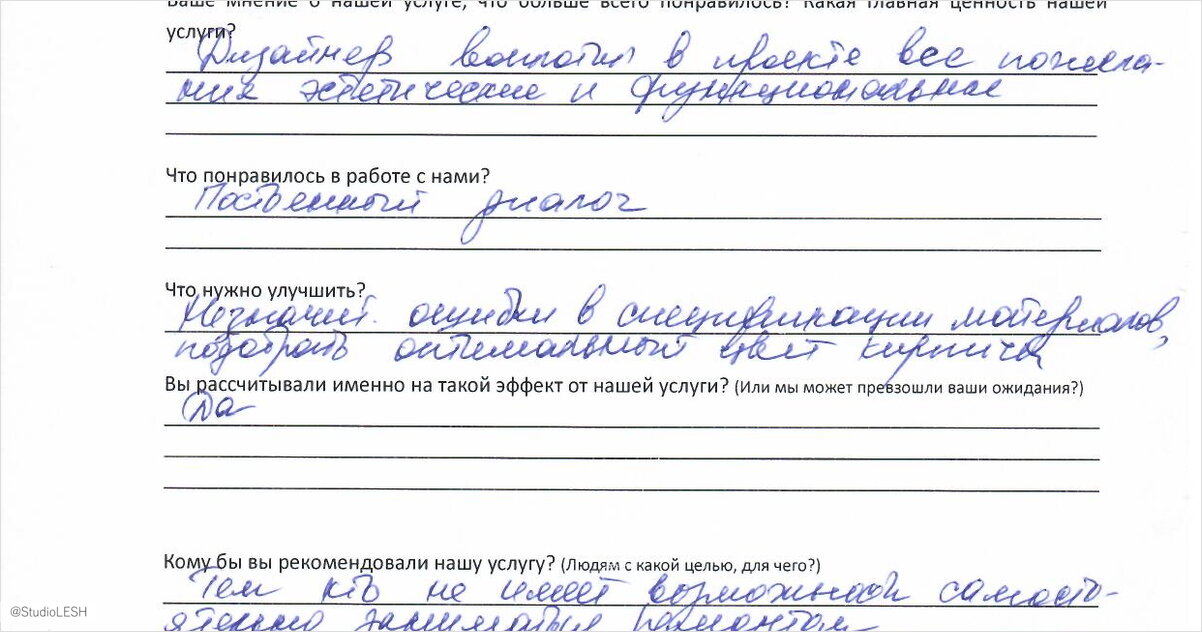 Ваше мнение о нашей услуге, что больше всего понравилось? Какая главная ценность нашей
услуги?
Дизайнер воплотил в проекте все пожела-
ния эстетические и функциональные
Что понравилось в работе с нами?
Постоенный диалог
Что нужно улучшить?
Незначит. ошибки в спецификации материалов,
подобрать оптимальный цвет кирпича
Вы рассчитывали именно на такой эффект от нашей услуги? (Или мы может превзошли ваши ожидания?)
Да
Кому бы вы рекомендовали нашу услугу? (Людям с какой целью, для чего?)
Тем кто не имеет возможной самосто-
ятельно заниматься ремонтом
@StudioLESH